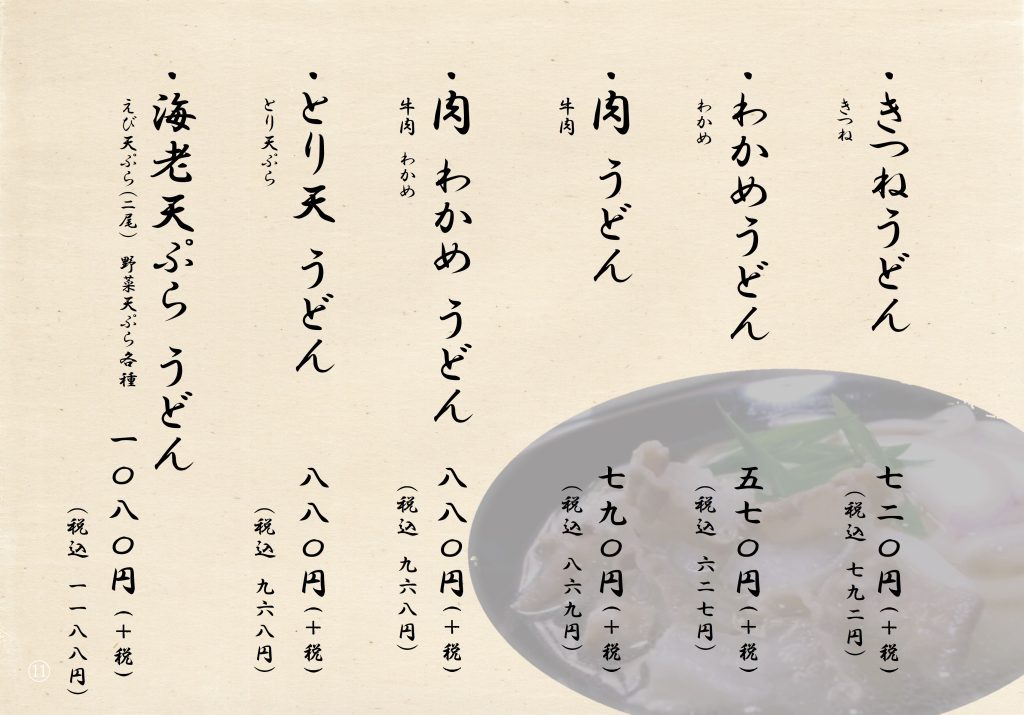 ・きつねうどん
きつね
七二〇円(+税)
(税込 七九二円)
・わかめうどん
わかめ
五七〇円(+税)
(税込 六二七円)
・肉 うどん
牛肉
七九〇円(+税)
(税込 八六九円)
・肉 わかめ うどん
牛肉 わかめ
八八〇円(+税)
(税込 九六八円)
・とり天 うどん
とり天ぷら
八八〇円(+税)
(税込 九六八円)
・海老天ぷら うどん
えび天ぷら(二尾) 野菜天ぷら各種
一〇八〇円(+税)
(税込 一一八八円)
⑪